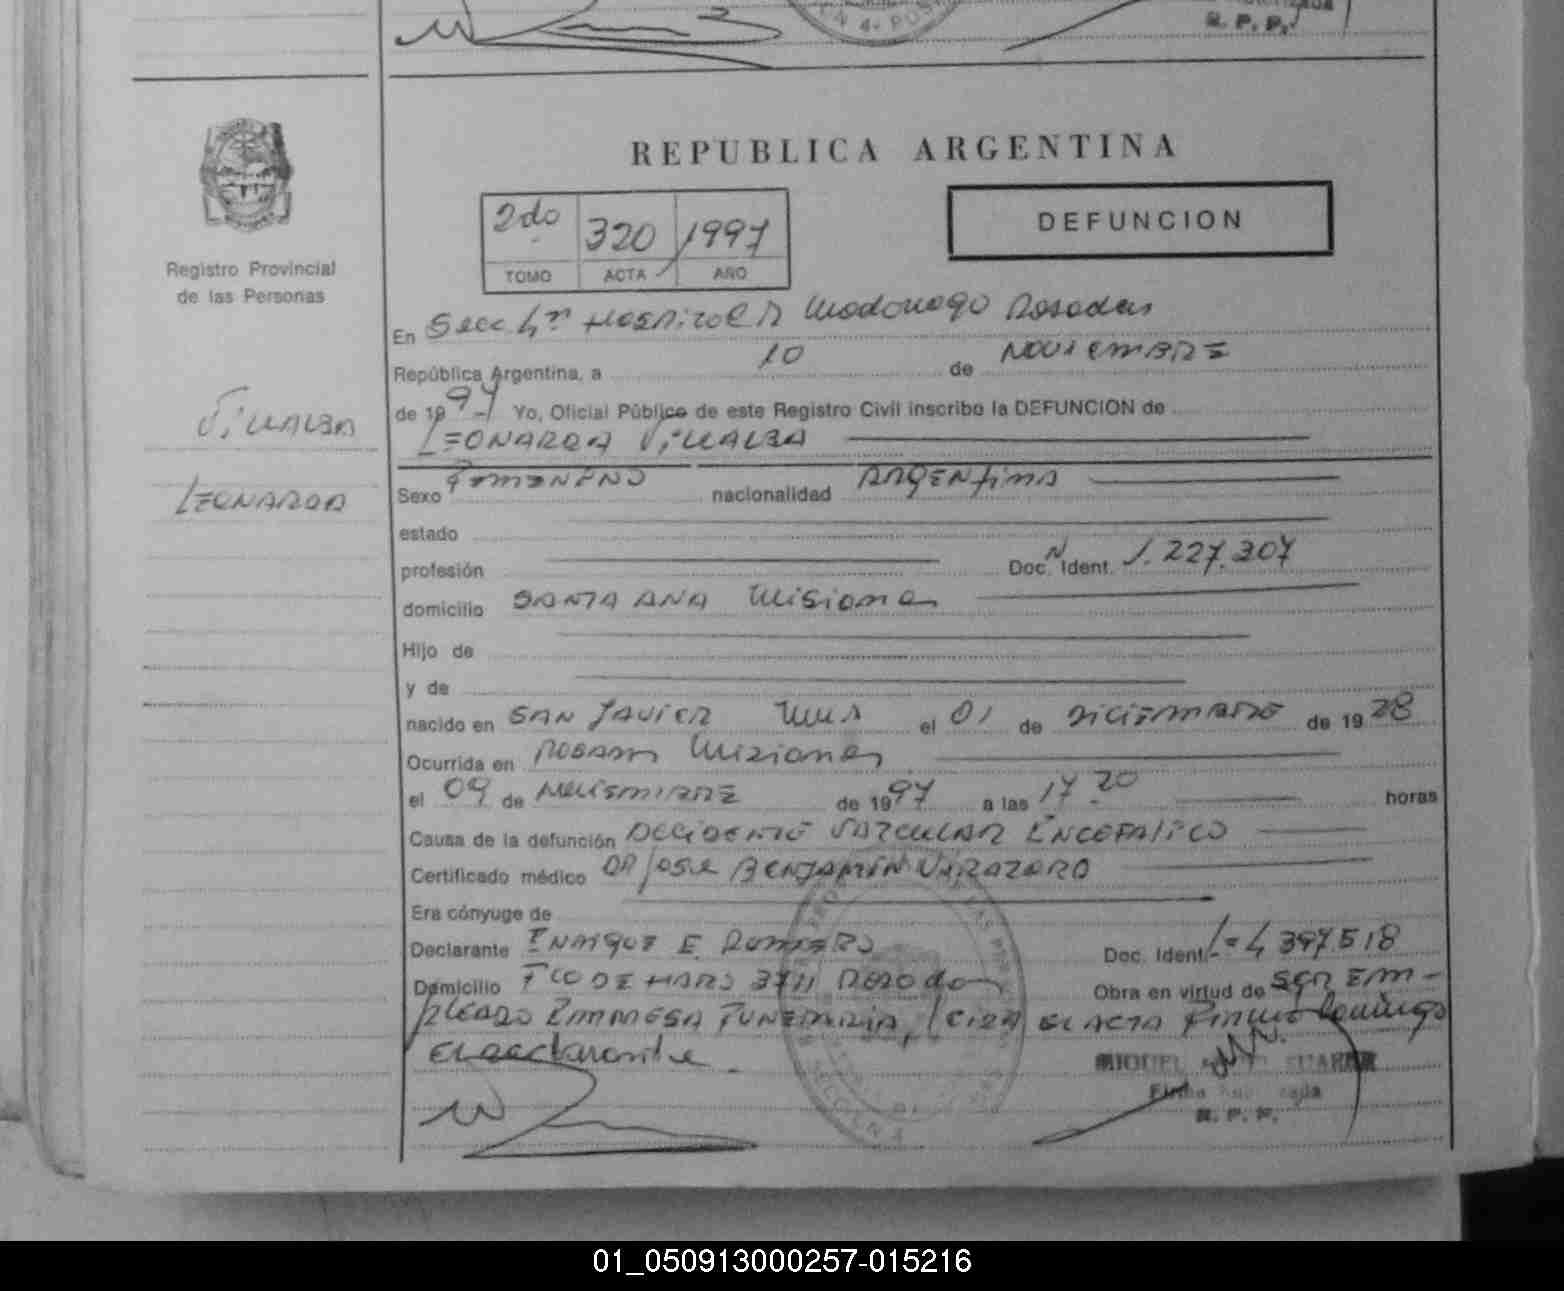 R. P. P.
REPUBLICA ARGENTINA
2do 320 1997
TOMO ACTA AÑO
DEFUNCION
Registro Provincial
de las Personas
VILLALBA
LEONARDA
En Secc 4ta Hospital R Madariaga Posadas
República Argentina, a 10 de NOVIEMBRE
de 1997 Yo, Oficial Público de este Registro Civil inscribo la DEFUNCION de
LEONARDA VILLALBA
Sexo FEMENINO nacionalidad ARGENTINA
estado
profesión Doc. Ident. 1.227.307
domicilio SANTA ANA Misiones
Hijo de
y de
nacido en SAN JAVIER Mnes el 01 de DICIEMBRE de 1928
Ocurrida en POSADAS Misiones
el 09 de NOVIEMBRE de 1997 a las 17 20 horas
Causa de la defunción ACCIDENTE VASCULAR ENCEFALICO
Certificado médico DR JOSE BENJAMIN
Era cónyuge de
Declarante ENRIQUE E. ROMERO Doc. Ident. 397.518
Domicilio FCO DE HARO Posadas Obra en virtud de SER EM-
PLEADO EMPRESA FUNERARIA, LEIDA EL ACTA FIRMA Conmigo
El declarante.
MIGUEL SUAREZ
Firma
R. P. P.
01_050913000257-015216